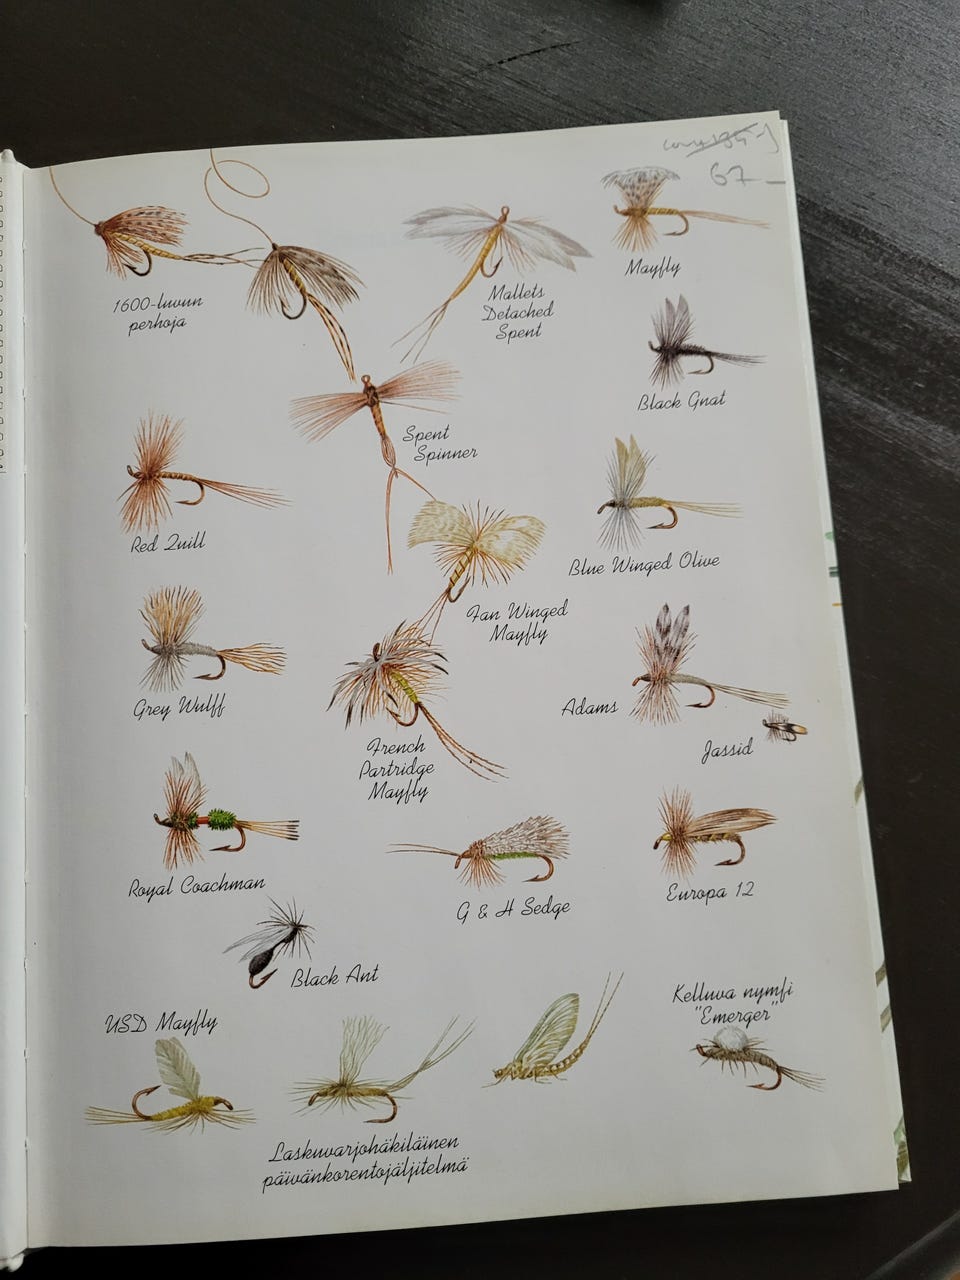 67-
1600-luvun
perhoja
Mallets
Detached
Spent
Mayfly
Black Gnat
Spent
Spinner
Red Quill
Blue Winged Olive
Fan Winged
Mayfly
Grey Wulff
Adams
Jassid
French
Partridge
Mayfly
Royal Coachman
G & H Sedge
Europa 12
Black Ant
Kelluva nymfi
"Emerger"
USD Mayfly
Laskuvarjohäkiläinen
päivänkorentojäljitelmä